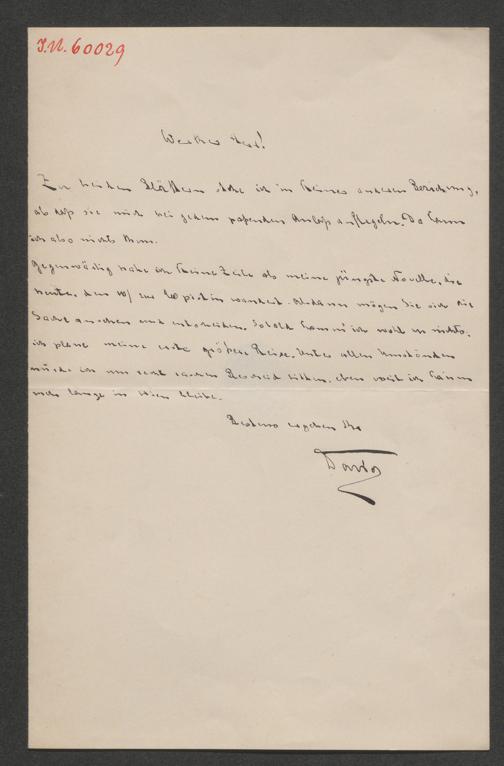 J.N. 60029
Werther Herr!
Zu beiden Blättern stehe ich in keiner anderen Beziehung,
als daß sie mich bei jedem passenden Anlaß anflegeln. Da kann
ich also nichts thun.
Gegenwärtig habe ich keine Zeile als meine jüngste Novelle, die
heute, den zum Copisten wandert. mögen Sie sich die
Sache ansehen und entscheiden. Sobald komm' ich wohl zu nichts,
ich plane meine erste größere Reise. Unter allen Umständen
würde ich um recht raschen Bescheid bitten, eben weil ich kaum
mehr lange in Wien bleibe.
Bestens ergeben Ihr
David